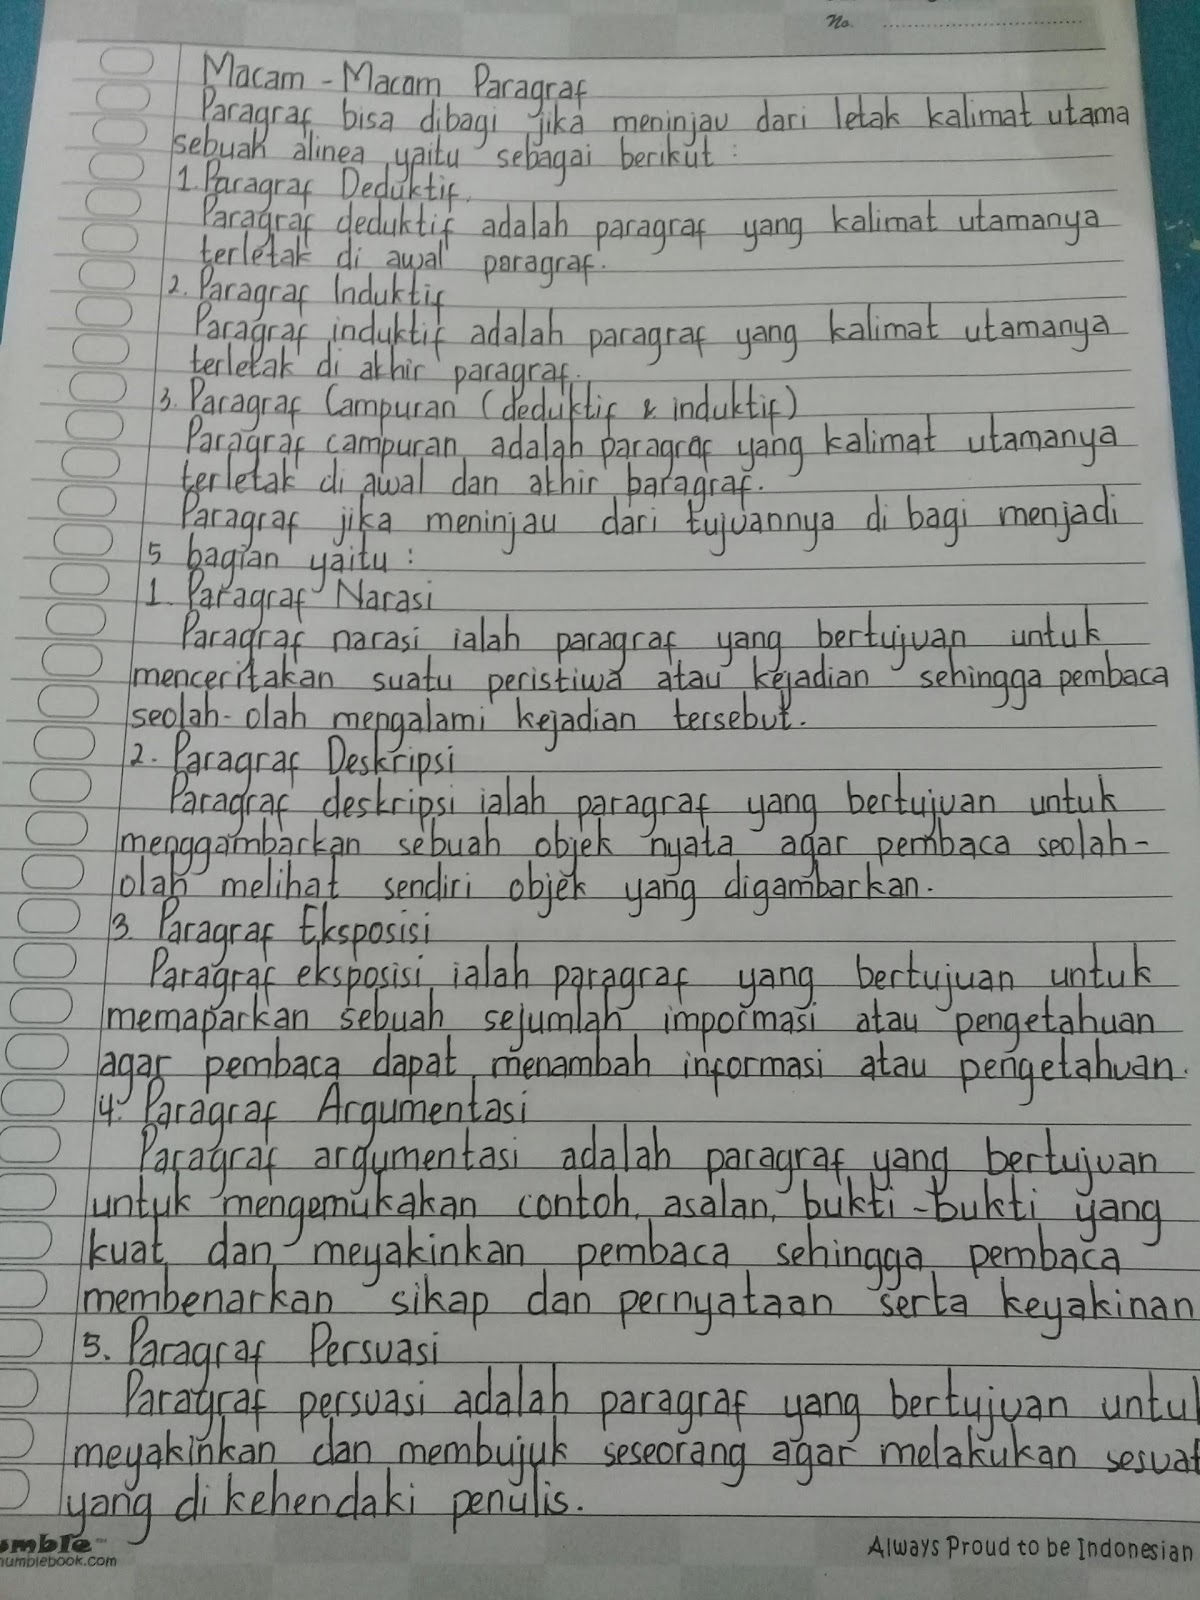 No. ....................................
Macam - Macam Paragraf
Paragraf bisa dibagi jika meninjau dari letak kalimat utama
sebuah alinea yaitu sebagai berikut :
1. Paragraf Deduktif.
Paragraf deduktif adalah paragraf yang kalimat utamanya
terletak di awal paragraf.
2. Paragraf Induktif
Paragraf induktif adalah paragraf yang kalimat utamanya
terletak di akhir paragraf.
3. Paragraf Campuran (deduktif & induktif)
Paragraf campuran adalah paragraf yang kalimat utamanya
terletak di awal dan akhir baragraf.
Paragraf jika meninjau dari tujuannya di bagi menjadi
5 bagian yaitu :
1. Paragraf Narasi
Paragraf narasi ialah paragraf yang bertujuan untuk
menceritakan suatu peristiwa atau kejadian sehingga pembaca
seolah-olah mengalami kejadian tersebut.
2. Paragraf Deskripsi
Paragraf deskripsi ialah paragraf yang bertujuan untuk
menggambarkan sebuah objek nyata agar pembaca seolah-
olah melihat sendiri objek yang digambarkan.
3. Paragraf Eksposisi
Paragraf eksposisi ialah paragraf yang bertujuan untuk
memaparkan sebuah sejumlah impormasi atau pengetahuan
agar pembaca dapat menambah informasi atau pengetahuan.
4. Paragraf Argumentasi
Paragraf argumentasi adalah paragraf yang bertujuan
untuk mengemukakan contoh, asalan, bukti-bukti yang
kuat dan meyakinkan pembaca sehingga pembaca
membenarkan sikap dan pernyataan serta keyakinan
5. Paragraf Persuasi
Paragraf persuasi adalah paragraf yang bertujuan untuk
meyakinkan dan membujuk seseorang agar melakukan sesuat
yang di kehendaki penulis.
umble
numblebook.com
Always Proud to be Indonesian